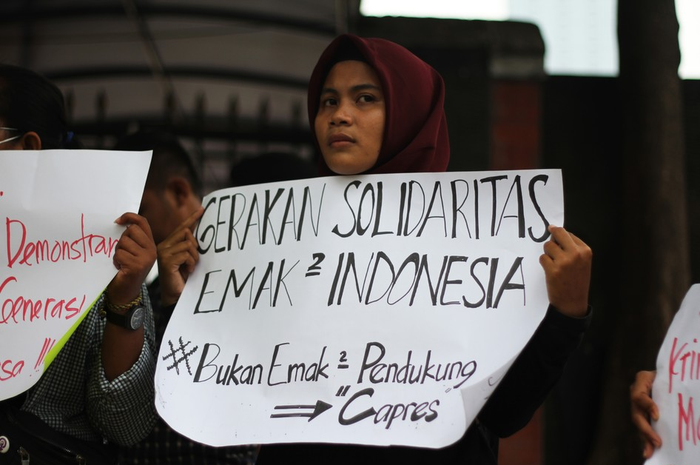 Demonstran
Generasi
GERAKAN SOLIDARITAS
EMAK² INDONESIA
#Bukan Emak² Pendukung
⇒ "Capres"